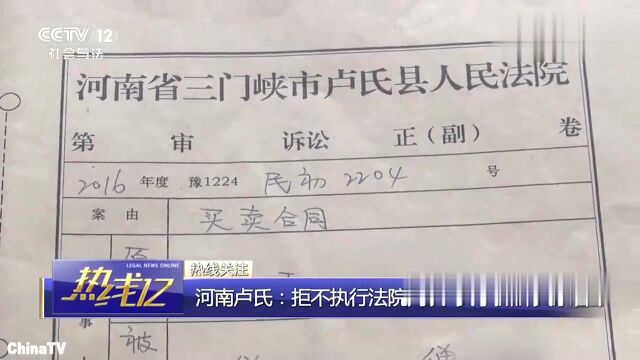 CCTV 12
社会与法
河南省三门峡市卢氏县人民法院
第 审 诉讼 正(副) 卷
2016 年度 豫1224 民初 2204 号
案由 买卖合同
原
LEGAL NEWS ONLINE
热线关注
热线12
河南卢氏：拒不执行法院
事
被
ChinaTV